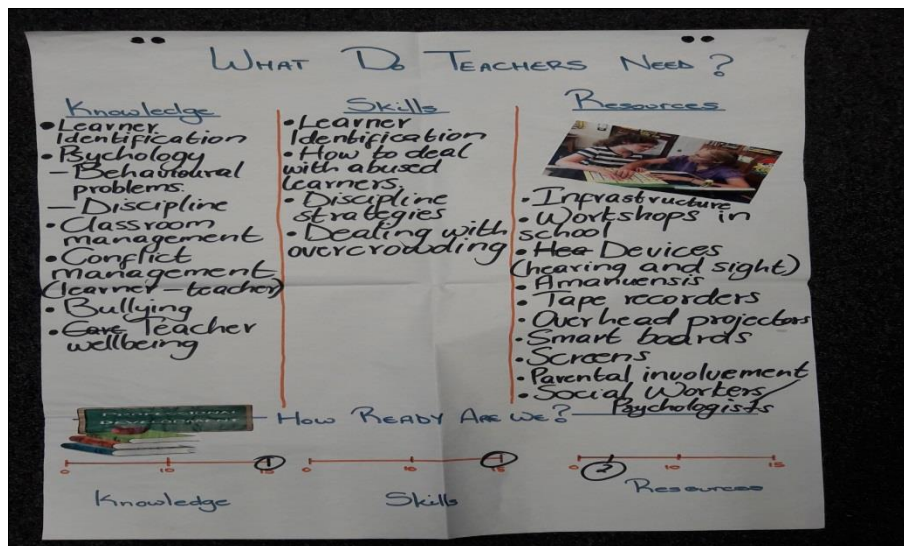 WHAT DO TEACHERS NEED?
Knowledge
• Learner
Identification
• Psychology
– Behavioural
problems.
– Discipline
• Classroom
management
• Conflict
management
(learner – teacher)
• Bullying
• Care Teacher
wellbeing
Skills
• Learner
Identification
• How to deal
with abused
learners
• Discipline
strategies
• Dealing with
overcrowding
Resources
• Infrastructure
• Workshops in
school
• Hea Devices
(hearing and sight)
• Amanuensis
• Tape recorders
• Overhead projectors
• Smart boards
• Screens
• Parental involvement
• Social Workers/
Psychologists
PROFESSIONAL
DEVELOPMENT
HOW READY ARE WE?
0 10 15
Knowledge
0 10 15
Skills
0 2 10 15
Resources